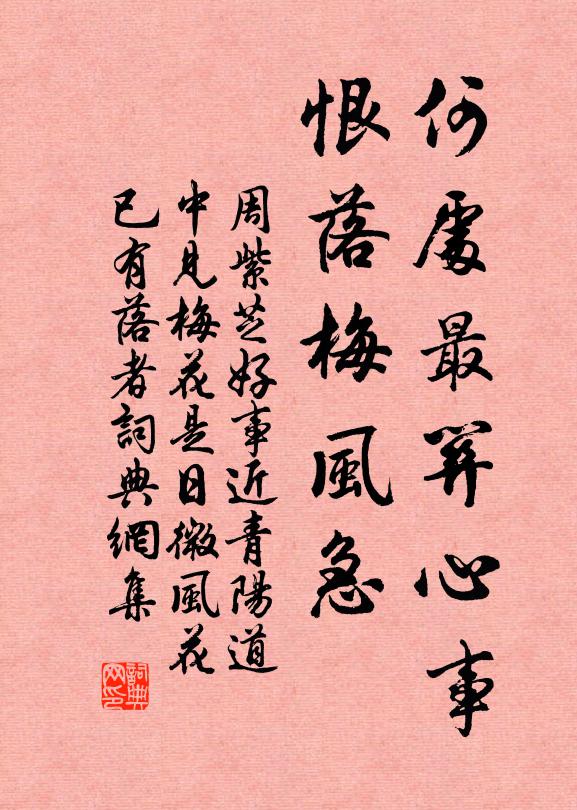 何處最關心事
恨落梅風急
周紫芝好事近青陽道
中見梅花是日微風花
已有落者詞典網集
詞典
网印